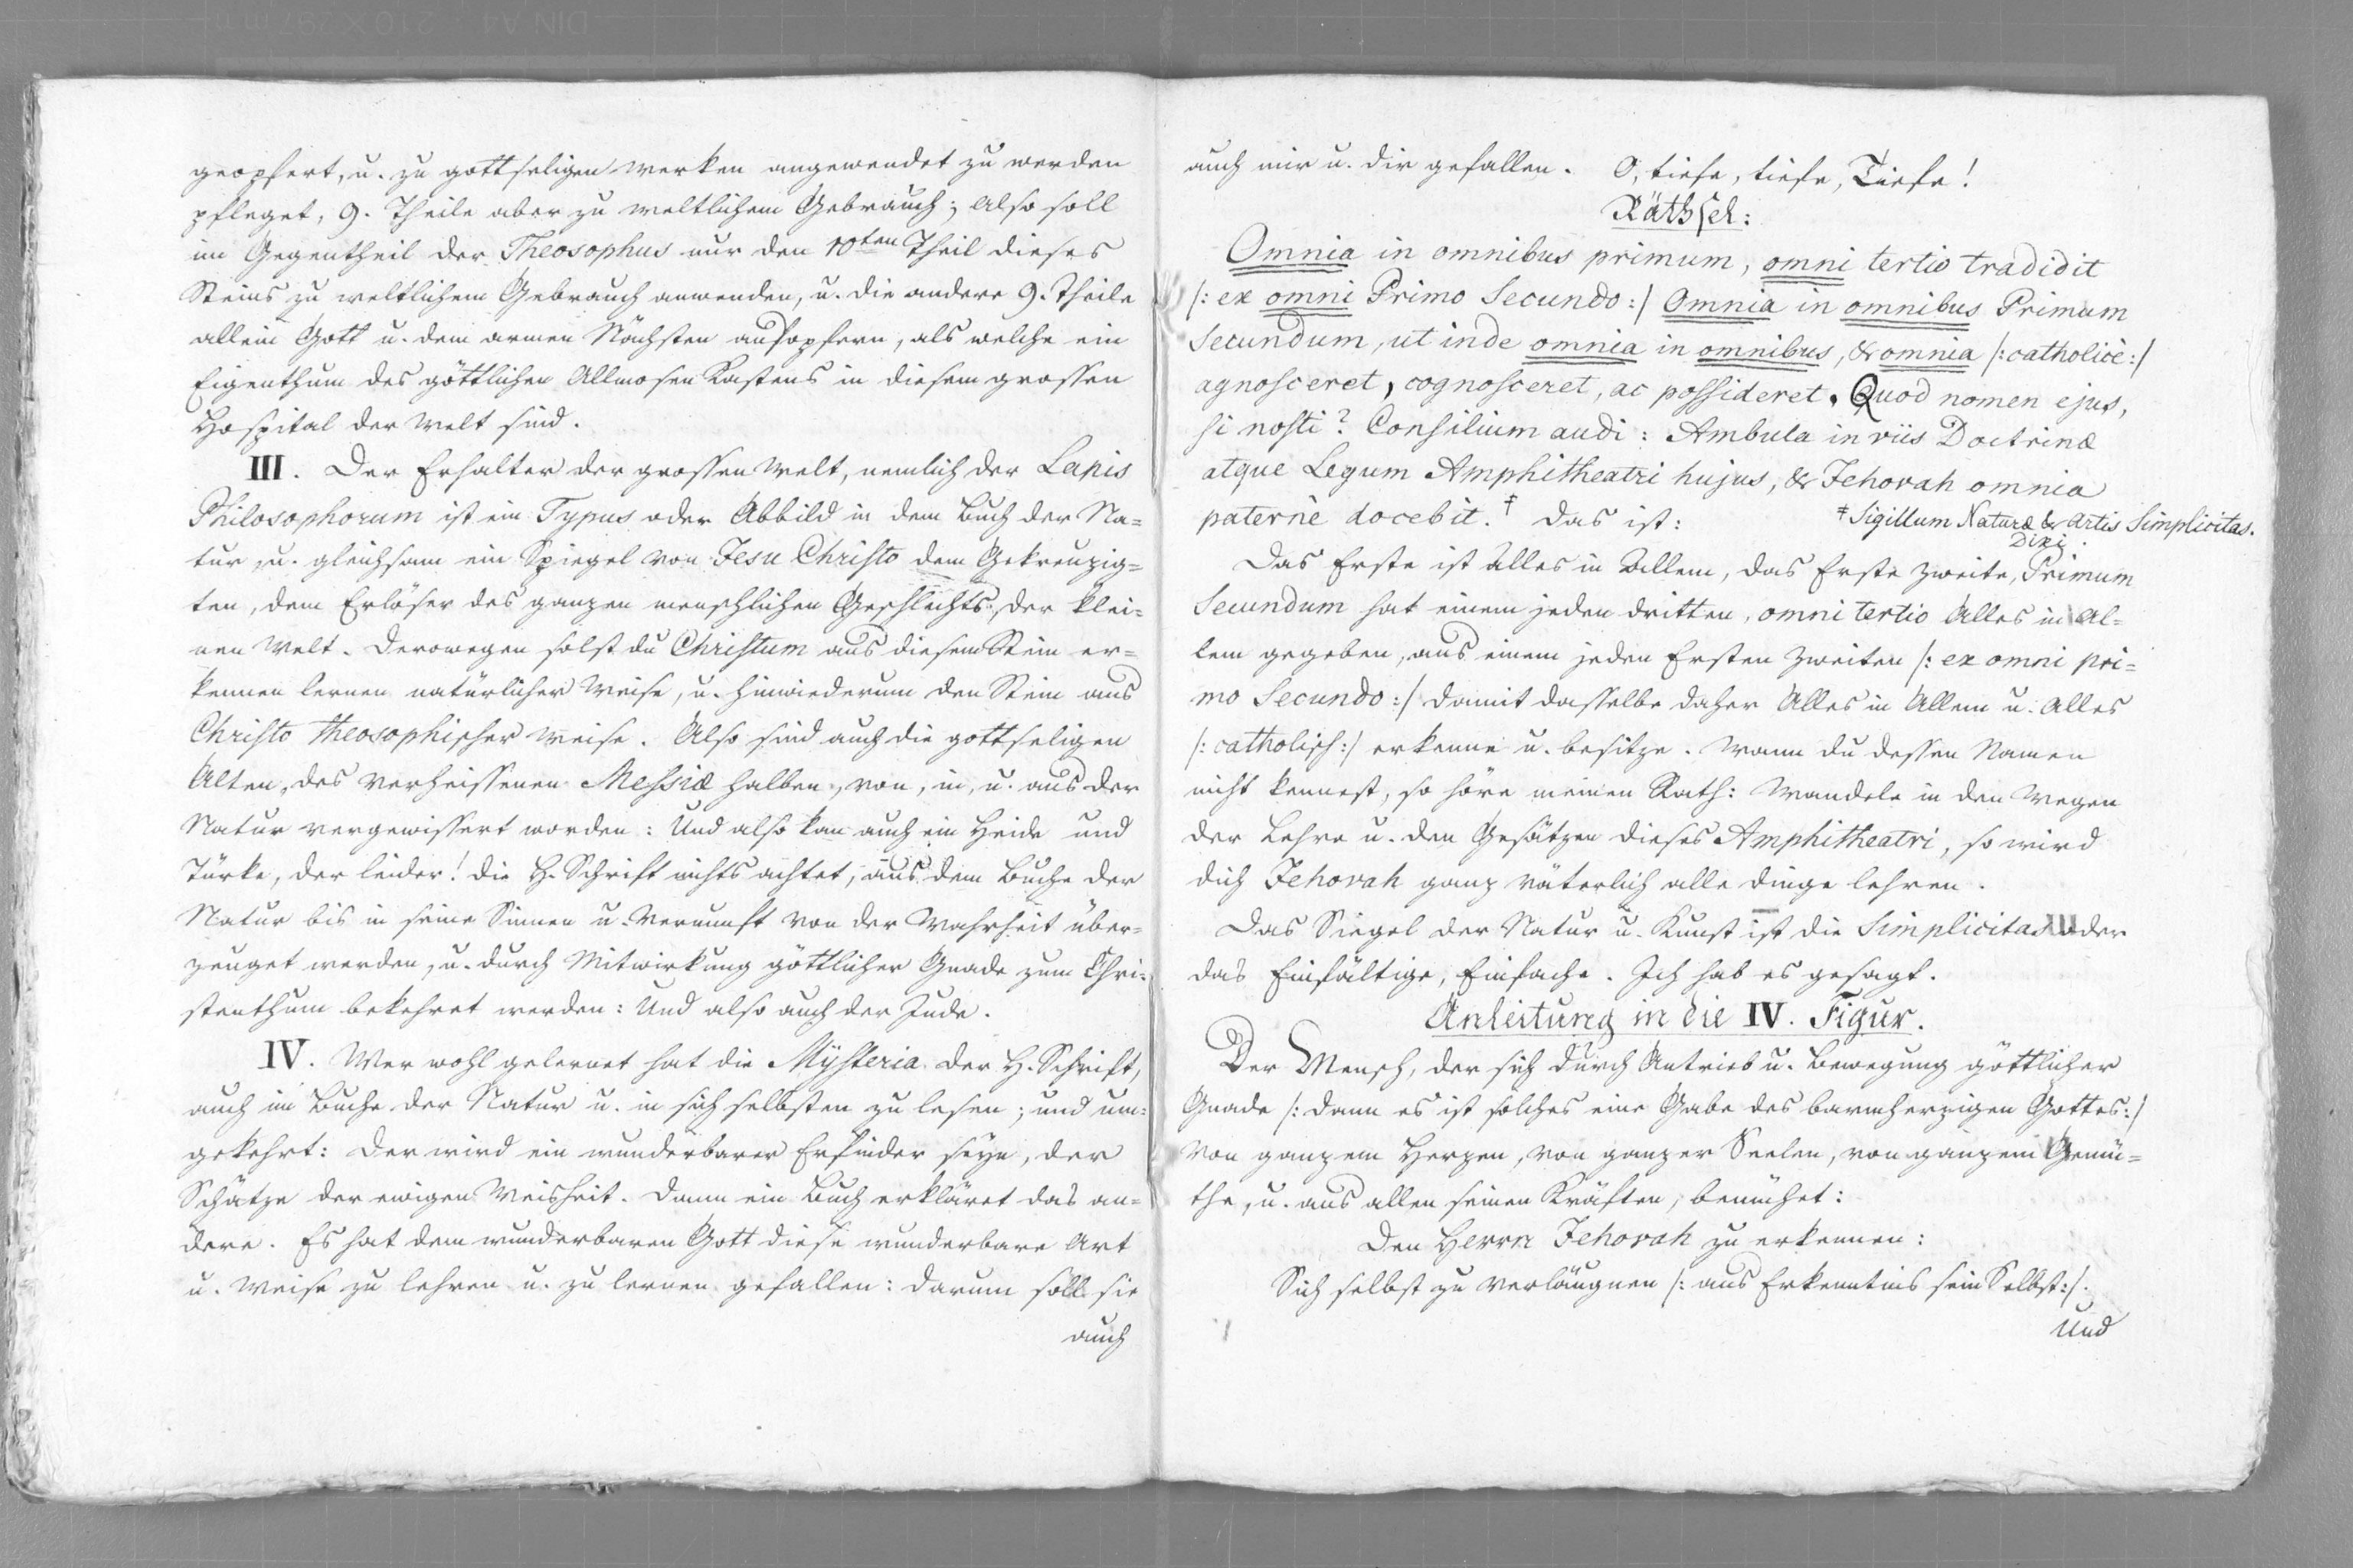 geopfert, u. zu gottseligen Werken angewendet zu werden
pfleget, 9. Theile aber zu weltlichem Gebrauch; Also soll
im Gegentheil der Theosophus nur den 10ten Theil dieses
Steins zu weltlichem Gebrauch anwenden, u. die andere 9. Theile
allein Gott u. dem armen Nächsten aufopfern, als welche ein
Eigenthum des göttlichen Allmosen Kastens in diesem grossen
Hospital der Welt sind.
III. Der Erhalter der grossen Welt, nemlich der Lapis
Philosophorum ist ein Typus oder Abbild in dem Buch der Na=
tur, u. gleichsam ein Spiegel von Jesu Christo dem Gekreuzig=
ten, dem Erlöser des ganzen menschlichen Geschlechts, der klei=
nen Welt. Derowegen solst du Christum aus diesem Stein er=
kennen lernen natürlicher Weise, u. hinwiederum den Stein aus
Christo theosophischer Weise. Also sind auch die gottseligen
Alten, des verheissenen Messiæ halben, von, in, u. aus der
Natur vergewissert worden: Und also kan auch ein Heide und
Türke, der leider! die H. Schrift nichts achtet, aus dem Buche der
Natur bis in seine Sinnen u. Vernunft von der Wahrheit über=
zeuget werden, u. durch Mitwirkung göttlicher Gnade zum Chri=
stenthum bekehret werden: Und also auch der Jude.
IV. Wer wohl gelernet hat die Mÿsteria der H. Schrift,
auch im Buche der Natur u. in sich selbsten zu lesen; und um=
gekehrt: Der wird ein wunderbarer Erfinder seÿn, der
Schätze der ewigen Weisheit. Dann ein Buch erkläret das an=
dere. Es hat dem wunderbaren Gott diese wunderbare Art
u. Weise zu lehren u. zu lernen gefallen: Darum soll sie
auch
auch mir u. dir gefallen. O, tiefe, tiefe, Tiefe!
Räthsel:
Omnia in omnibus primum, omni tertio tradidit
/: ex omni Primo Secundo :/ Omnia in omnibus Primum
Secundum, ut inde omnia in omnibus, & omnia /: catholicè :/
agnosceret, cognosceret, ac possideret. Quod nomen ejus,
si nosti? Consilium audi: Ambula in viis Doctrinæ
atque Legum Amphitheatri hujus, & Jehovah omnia
paternè docebit.‡ Das ist:
‡ Sigillum Naturæ & Artis Simplicitas.
Dixi.
Das Erste ist Alles in Allem, das Erste Zweite, Primum
Secundum hat einem jeden dritten, omni tertio Alles in Al=
lem gegeben, aus einem jeden Ersten Zweiten /: ex omni pri=
mo Secundo :/ damit dasselbe daher Alles in Allem u. Alles
/: catholisch :/ erkenne u. besitze. Wann du dessen Namen
nicht kennest, so höre meinen Rath: Wandele in den Wegen
der Lehre u. den Gesätzen dieses Amphitheatri, so wird
dich Jehovah ganz väterlich alle Dinge lehren.
Das Siegel der Natur u. Kunst ist die Simplicitas oder
das Einfältige, Einfache. Ich hab es gesagt.
Anleitung in die IV. Figur.
Der Mensch, der sich durch Antrieb u. Bewegung göttlicher
Gnade /: dann es ist solches eine Gabe des barmherzigen Gottes :/
von ganzem Herzen, von ganzer Seelen, von ganzem Gemü=
the, u. aus allen seinen Kräften, bemühet:
Den Herrn Jehovah zu erkennen:
Sich selbst zu verläugnen /: aus Erkenntnis sein Selbst :/.
Und